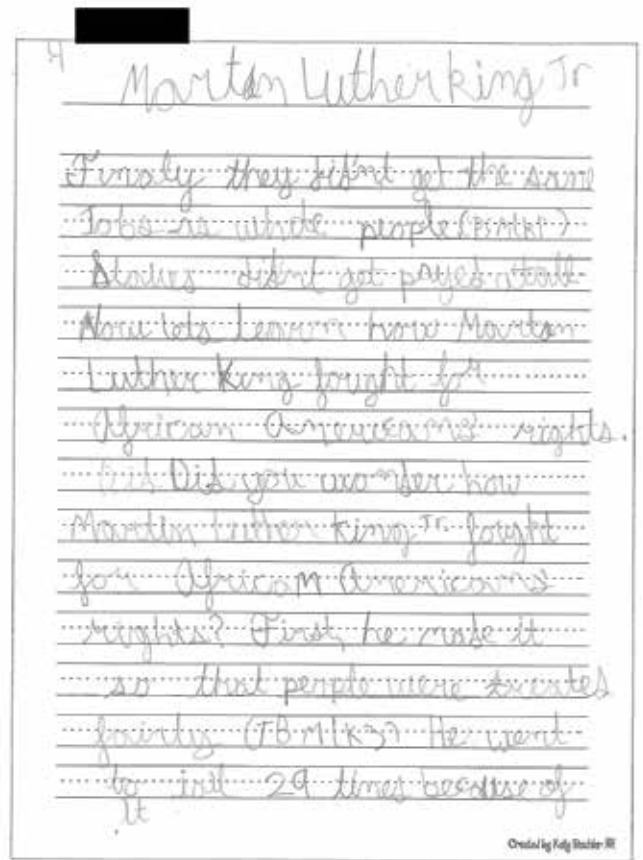 4
Martin Luther king Jr
Finaly they didn't get the same
Jobs as white people
Slaves didn't get payed atall
Now lets Learn how Martin
Luther King fought for
African Americans rights.
Did Did you wonder how
Martin Luther king Jr. fought
for African Americans
rights? First, he made it
so that people were treated
fairly He went
to jail 29 times because of
it
Created by Katy